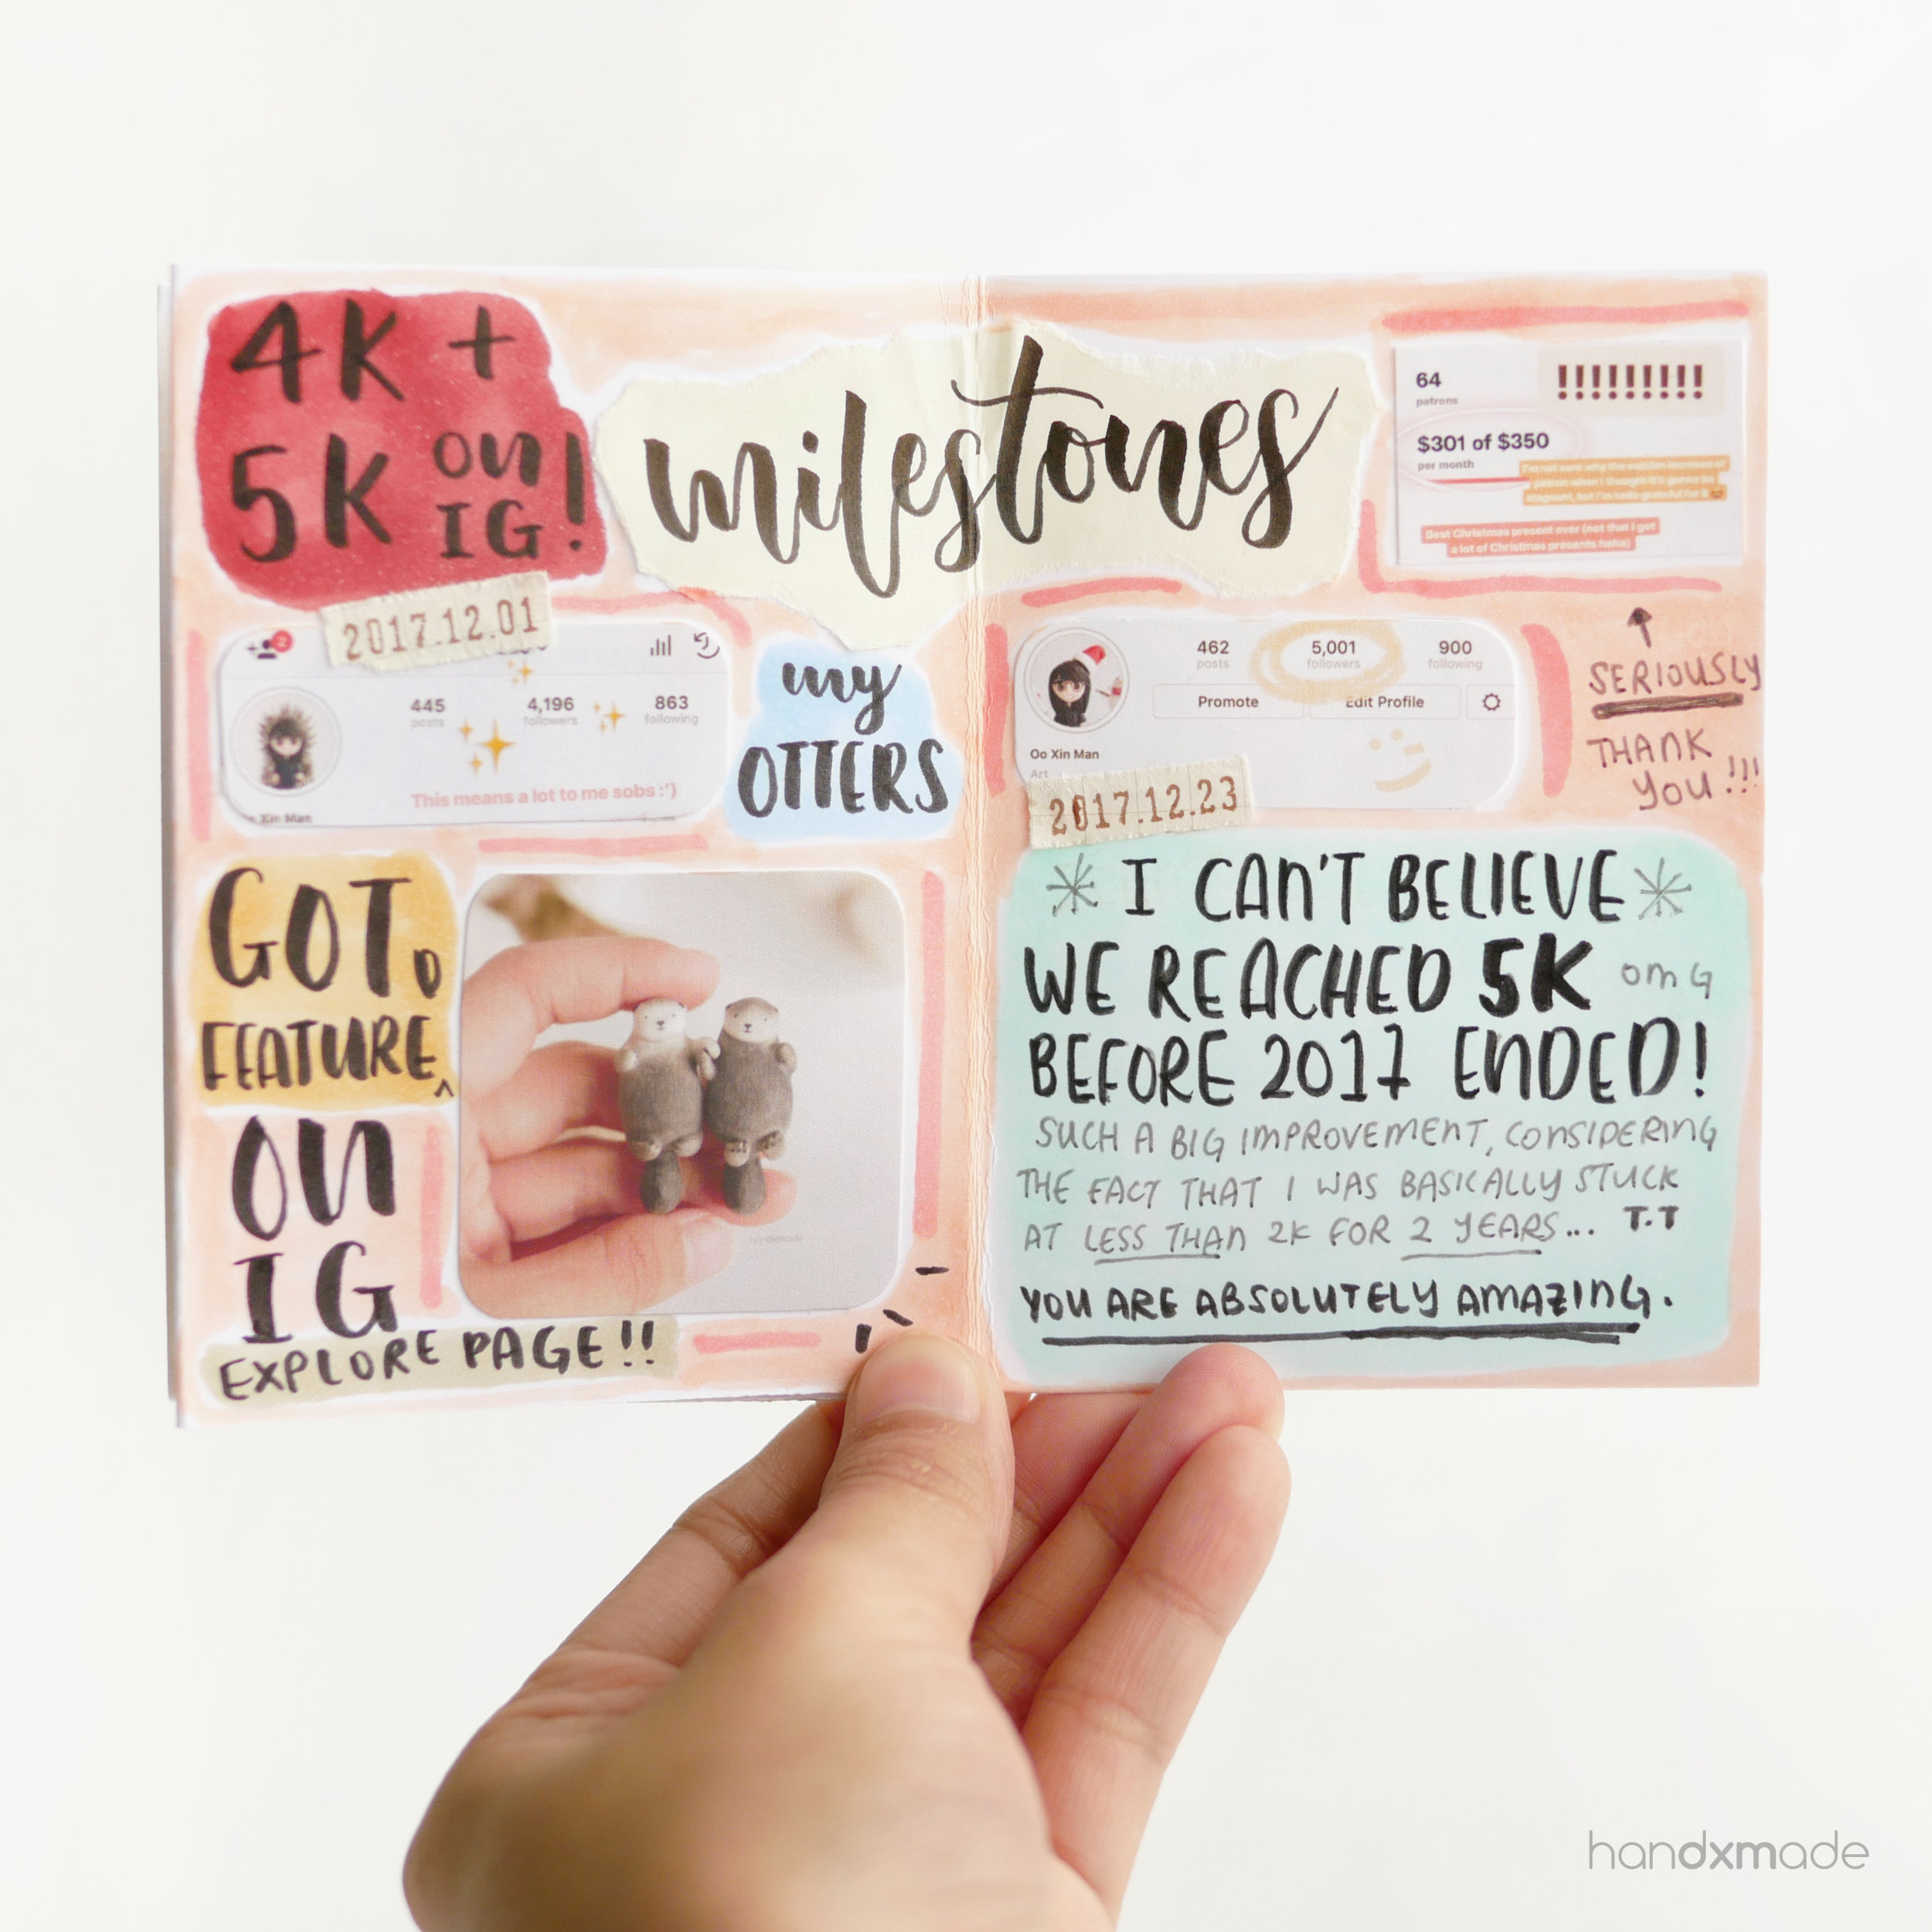 4K +
5K on IG!
milestones
64
patrons
!!!!!!!!!
$301 of $350
per month
I'm not sure why the sudden increase of
patron when I thought it's gonna be
stagnant, but I'm hella grateful for it
Best Christmas present ever (not that I get
a lot of Christmas presents haha)
SERIOUSLY
THANK
YOU!!!
2017.12.01
2
445
posts
4,196
followers
863
following
This means a lot to me sobs :')
Xin Man
my
OTTERS
GOT
FEATURED
ON
IG
EXPLORE PAGE!!
handxmade
462
posts
5,001
followers
900
following
Promote
Edit Profile
Oo Xin Man
Art
2017.12.23
I CAN'T BELIEVE
WE REACHED 5K OMG
BEFORE 2017 ENDED!
SUCH A BIG IMPROVEMENT, CONSIDERING
THE FACT THAT I WAS BASICALLY STUCK
AT LESS THAN 2K FOR 2 YEARS... T.T
YOU ARE ABSOLUTELY AMAZING.
handxmade